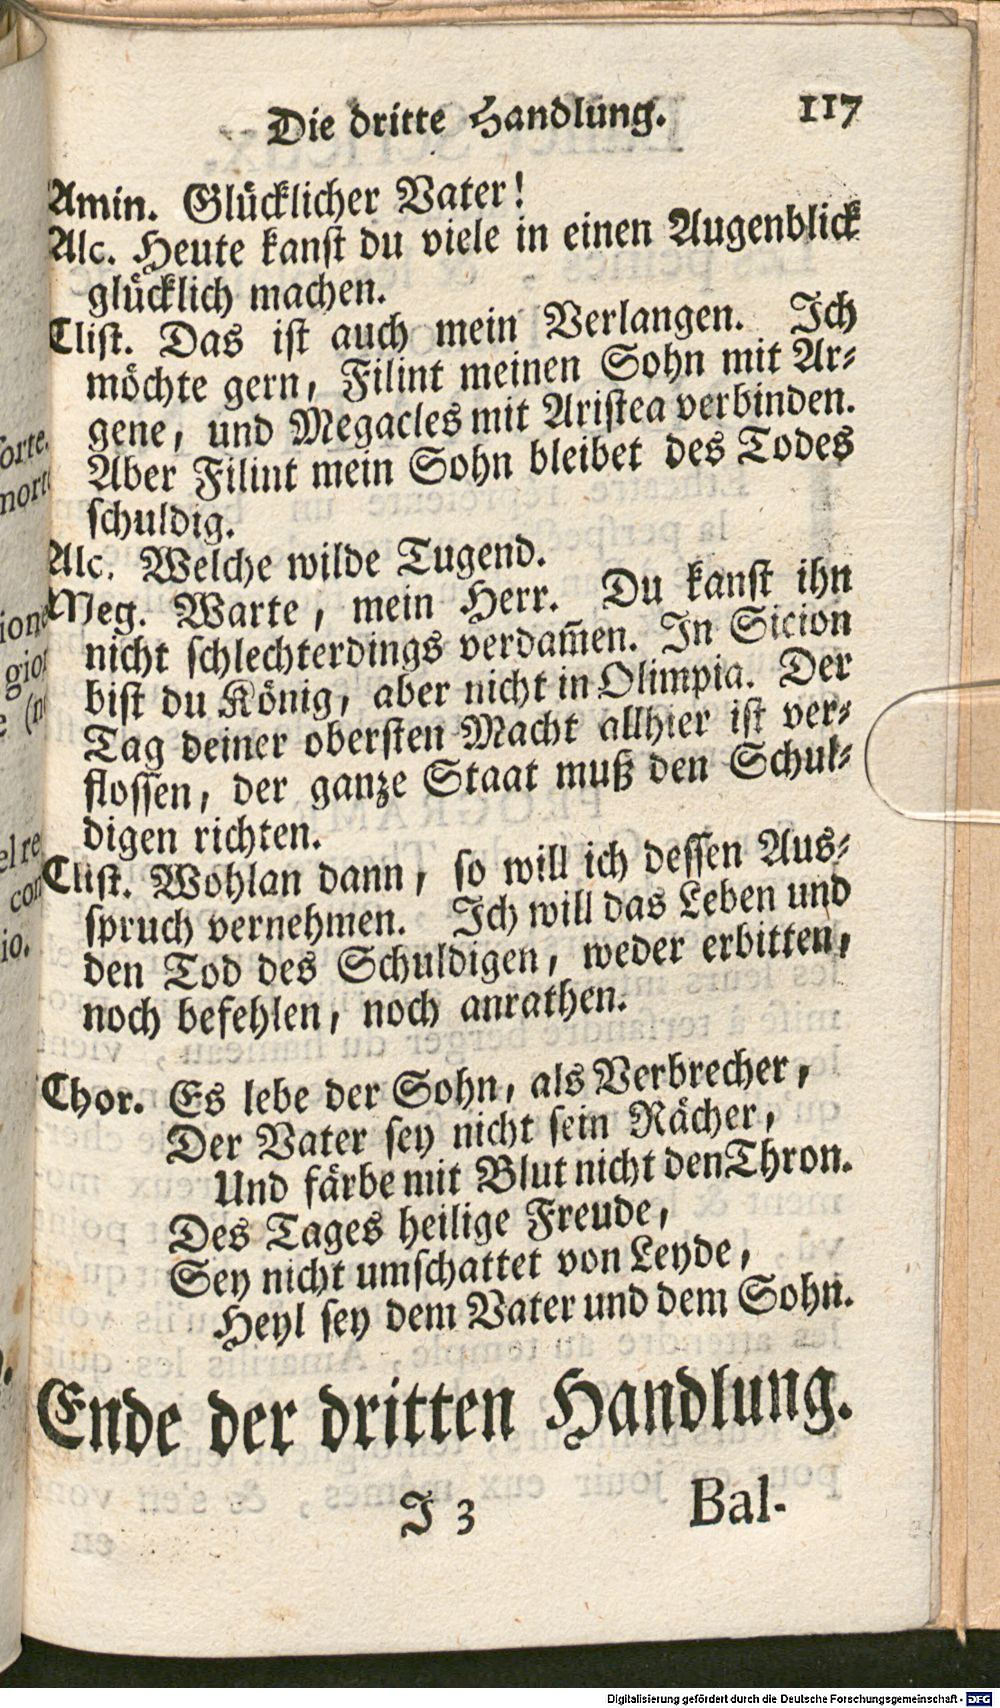 Die dritte Handlung. 117
Amin. Glücklicher Vater!
Alc. Heute kanst du viele in einen Augenblick
glücklich machen.
Clist. Das ist auch mein Verlangen. Ich
möchte gern, Filint meinen Sohn mit Ar-
gene, und Megacles mit Aristea verbinden.
Aber Filint mein Sohn bleibet des Todes
schuldig.
Alc. Welche wilde Tugend.
Meg. Warte, mein Herr. Du kanst ihn
nicht schlechterdings verdam̃en. In Sicion
bist du König, aber nicht in Olimpia. Der
Tag deiner obersten Macht allhier ist ver-
flossen, der ganze Staat muß den Schul-
digen richten.
Clist. Wohlan dann, so will ich dessen Aus-
spruch vernehmen. Ich will das Leben und
den Tod des Schuldigen, weder erbitten,
noch befehlen, noch anrathen.
Chor. Es lebe der Sohn, als Verbrecher,
Der Vater sey nicht sein Rächer,
Und färbe mit Blut nicht den Thron.
Des Tages heilige Freude,
Sey nicht umschattet von Leyde,
Heyl sey dem Vater und dem Sohn.
Ende der dritten Handlung.
J 3 Bal-
Digitalisierung gefördert durch die Deutsche Forschungsgemeinschaft - DFG